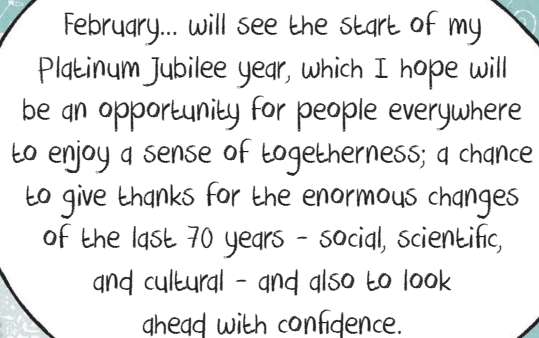 February... will see the start of my
Platinum Jubilee year, which I hope will
be an opportunity for people everywhere
to enjoy a sense of togetherness; a chance
to give thanks for the enormous changes
of the last 70 years - social, scientific,
and cultural - and also to look
ahead with confidence.